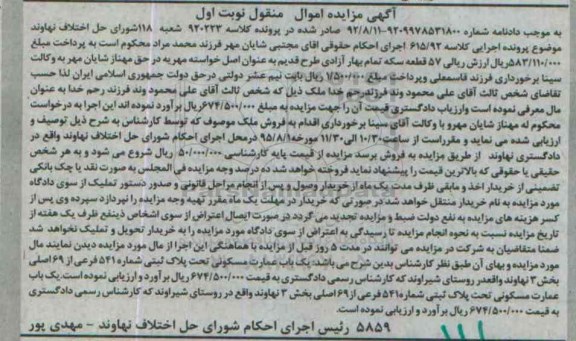 آگهی مزایده اموال منقول نوبت اول
به موجب دادنامه شماره ۹۲۰۹۹۷۸۵۳۱۸۰۰-۹۲/۸/۱۱ صادر شده در پرونده کلاسه ۹۲۰۲۲۳ شعبه ۱۱۸شورای حل اختلاف نهاوند
موضوع پرونده اجرایی کلاسه ۶۱۵/۹۲ اجرای احکام حقوقی اقای مجتبی شایان مهر فرزند محمد مراد محکوم است به پرداخت مبلغ
۵۸۳/۱۱۰/۰۰۰ریال ارزش ریالی ۵۷ قطعه سکه تمام بهار آزادی طرح قدیم به عنوان اصل خواسته مهریه در حق مهناز شایان مهر به وکالت
سینا برخورداری فرزند قاسمعلی وپرداخت مبلغ ۱/۵۰۰/۰۰۰ ریال بابت نیم عشر دولتی درحق دولت جمهوری اسلامی ایران لذا حسب
تقاضای شخص ثالث آقای علی محمود وند فرزندرحم خدا ملک ذیل که شخص ثالث آقای علی محمود وند فرزند رحم خدا به عنوان
مال معرفی نموده است وارزیاب دادگستری قیمت آن را جهت مزایده به مبلغ ۶۷۴/۵۰۰/۰۰۰ریال برآورد نموده اند این اجرا به درخواست
محکوم له مهناز شایان مهرو با وکالت آقای سینا برخورداری اقدام به فروش ملک موصوف که توسط کارشناس به شرح ذیل توصیف و
ارزیابی شده می نماید و مقرراست از ساعت ۱۰/۳۰الی۱۱/۳۰ مورخه۹۵/۸/۱ درمحل اجرای احکام شورای حل اختلاف نهاوند واقع در
دادگستری نهاوند از طریق مزایده به فروش برسد مزایده از قیمت پایه کارشناسی ۵۰/۰۰۰/۰۰۰ ریال شروع می شود و به هر شخص
حقیقی یا حقوقی که بالاترین قیمت را پیشنهاد نماید فروخته خواهد شد ده درصد وجه مزایده فی المجلس به صورت نقد یا چک بانکی
تضمینی از خریدار اخذ و مابقی ظرف مدت یک ماه از خریدار وصول و پس از انجام مراحل قانونی و صدور دستور تملیک از سوی دادگاه
مورد مزایده به نام خریدار منتقل خواهد شد در صورتی که خریدار در مهلت یک ماه مقرر تهیه وجه مزایده را نپردازد سپرده وی پس از
کسر هزینه های مزایده به نفع دولت ضبط و مزایده تجدید می گردد در صورت ایصال اعتراض از سوی اشخاص ذینفع ظرف یک هفته از
تاریخ مزایده نسبت به نحوه انجام مزایده تا رسیدگی به اعتراض از سوی دادگاه مورد مزایده را به خریدار تحویل و تملیک نخواهد شد
ضمنا متقاضیان به شرکت در مزایده می توانند در مدت ۵ روز قبل از مزایده با هماهنگی این اجرا از مال مورد مزایده دیدن نمایند مال
مورد مزایده و بهای آن طبق نظر کارشناس بدین شرح می باشد: یک باب عمارت مسکونی تحت پلاک ثبتی شماره ۵۴۱ فرعی از ۶۹ اصلی
بخش ۳ نهاوند واقعدر روستای شیراوند که کارشناس رسمی دادگستری به قیمت ۶۷۴/۵۰۰/۰۰۰ ریال برآورد و ارزیابی نموده است.یک باب
عمارت مسکونی تحت پلاک ثبتی شماره۵۴۱ فرعی از ۶۹اصلی بخش ۳ نهاوند واقع در روستای شیراوند که کارشناس رسمی دادگستری
به قیمت ۶۷۴/۵۰۰/۰۰۰ ریال برآورد و ارزیابی نموده است.
۵۸۵۹ رئیس اجرای احکام شورای حل اختلاف نهاوند - مهدی پور